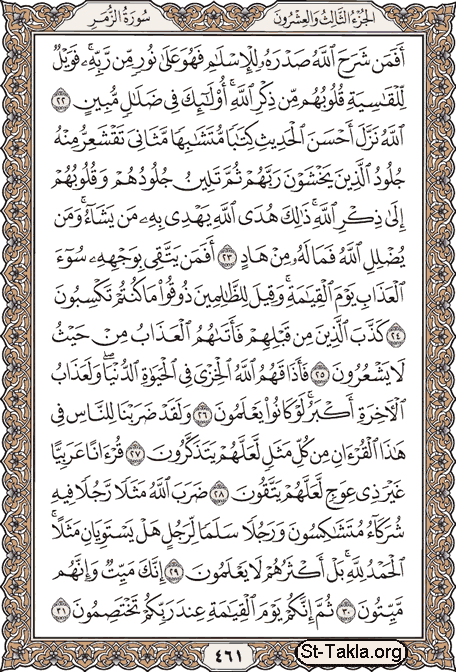 الجزء الثالث والعشرون
سورة الزمر
أَفَمَن شَرَحَ اللَّهُ صَدْرَهُۥ لِلْإِسْلَٰمِ فَهُوَ عَلَىٰ نُورٍ مِّن رَّبِّهِۦ ۚ فَوَيْلٌ
لِّلْقَٰسِيَةِ قُلُوبُهُم مِّن ذِكْرِ اللَّهِ ۚ أُو۟لَٰٓئِكَ فِى ضَلَٰلٍ مُّبِينٍ ٢٢
اللَّهُ نَزَّلَ أَحْسَنَ الْحَدِيثِ كِتَٰبًا مُّتَشَٰبِهًا مَّثَانِىَ تَقْشَعِرُّ مِنْهُ
جُلُودُ الَّذِينَ يَخْشَوْنَ رَبَّهُمْ ثُمَّ تَلِينُ جُلُودُهُمْ وَقُلُوبُهُمْ
إِلَىٰ ذِكْرِ اللَّهِ ۚ ذَٰلِكَ هُدَى اللَّهِ يَهْدِى بِهِۦ مَن يَشَآءُ ۚ وَمَن
يُضْلِلِ اللَّهُ فَمَا لَهُۥ مِنْ هَادٍ ٢٣ أَفَمَن يَتَّقِى بِوَجْهِهِۦ سُوٓءَ
الْعَذَابِ يَوْمَ الْقِيَٰمَةِ ۚ وَقِيلَ لِلظَّٰلِمِينَ ذُوقُوا۟ مَا كُنتُمْ تَكْسِبُونَ
٢٤ كَذَّبَ الَّذِينَ مِن قَبْلِهِمْ فَأَتَىٰهُمُ الْعَذَابُ مِنْ حَيْثُ
لَا يَشْعُرُونَ ٢٥ فَأَذَاقَهُمُ اللَّهُ الْخِزْىَ فِى الْحَيَوٰةِ الدُّنْيَا ۖ وَلَعَذَابُ
الْءَاخِرَةِ أَكْبَرُ ۚ لَوْ كَانُوا۟ يَعْلَمُونَ ٢٦ وَلَقَدْ ضَرَبْنَا لِلنَّاسِ فِى
هَٰذَا الْقُرْءَانِ مِن كُلِّ مَثَلٍ لَّعَلَّهُمْ يَتَذَكَّرُونَ ٢٧ قُرْءَانًا عَرَبِيًّا
غَيْرَ ذِى عِوَجٍ لَّعَلَّهُمْ يَتَّقُونَ ٢٨ ضَرَبَ اللَّهُ مَثَلًا رَّجُلًا فِيهِ
شُرَكَآءُ مُتَشَٰكِسُونَ وَرَجُلًا سَلَمًا لِّرَجُلٍ هَلْ يَسْتَوِيَانِ مَثَلًا ۚ
الْحَمْدُ لِلَّهِ ۚ بَلْ أَكْثَرُهُمْ لَا يَعْلَمُونَ ٢٩ إِنَّكَ مَيِّتٌ وَإِنَّهُم
مَّيِّتُونَ ٣٠ ثُمَّ إِنَّكُمْ يَوْمَ الْقِيَٰمَةِ عِندَ رَبِّكُمْ تَخْتَصِمُونَ ٣١
٤٦١
St-Takla.org